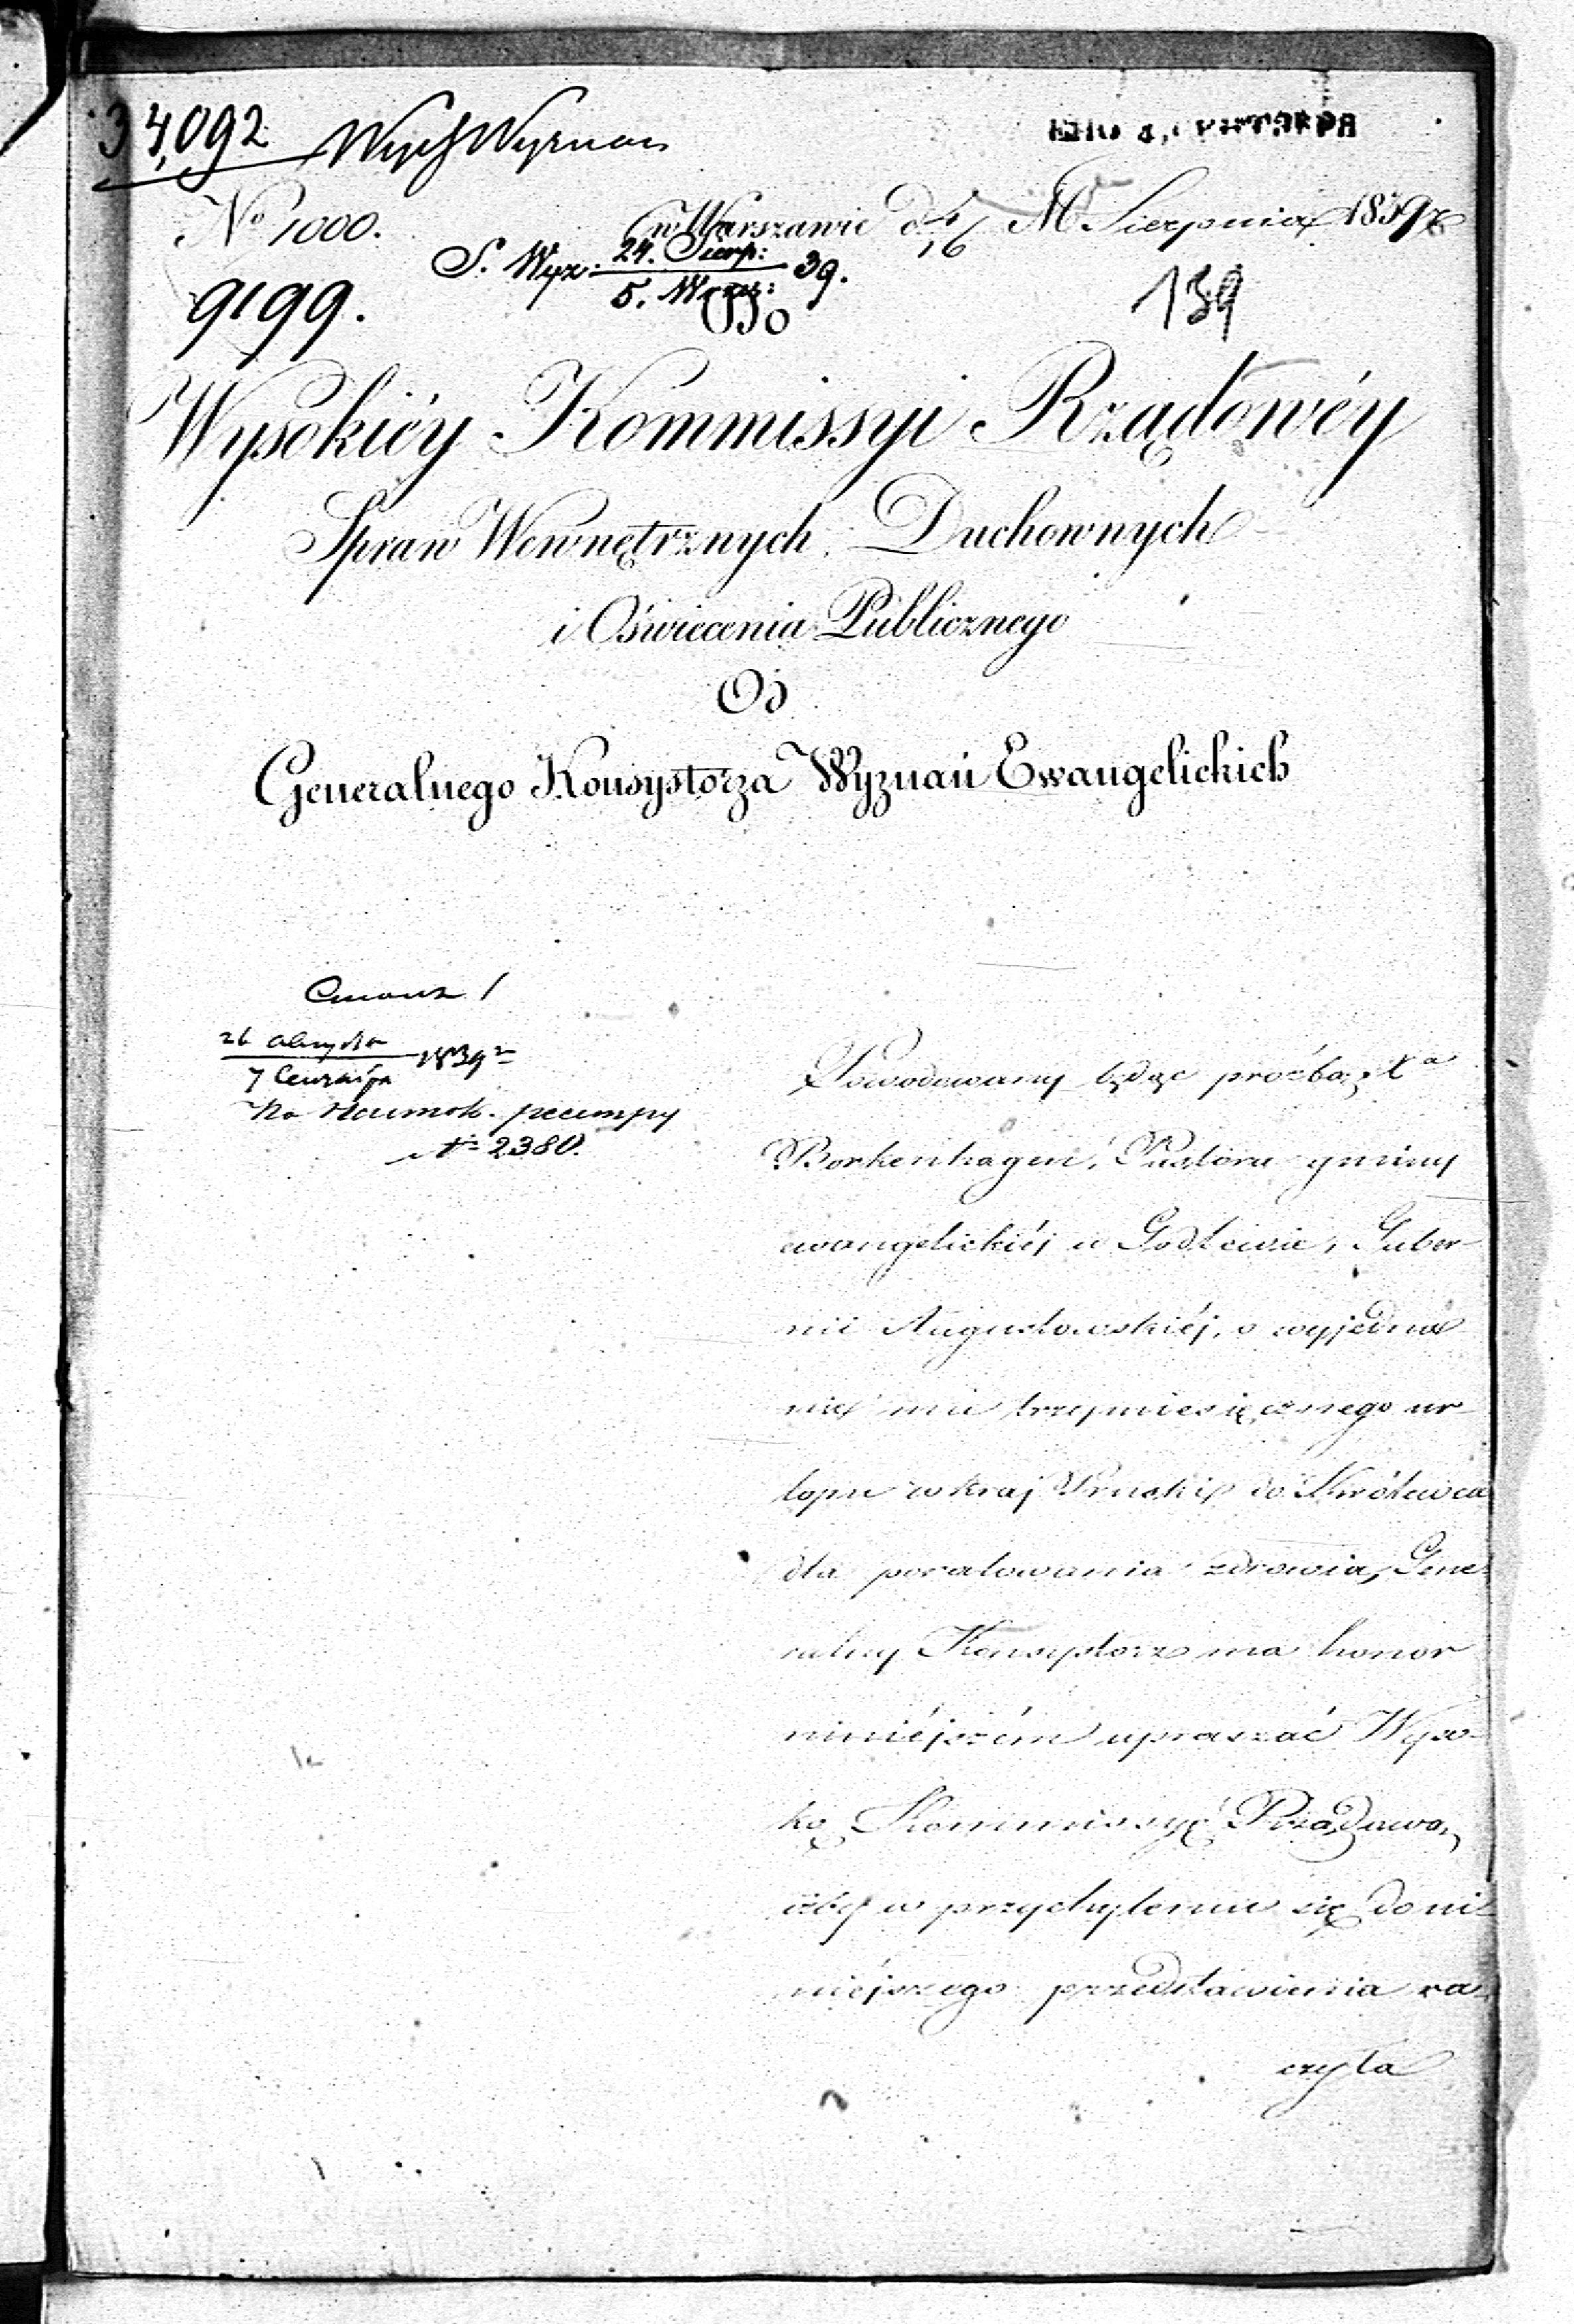 34,092 Wych Wyznan
No 1000. w Warszawie d 4/16 M Sierpnia 1839 r
S. Wyz. 24. Sierp: / 5. Wrzes: 39.
9199. Do 139
Wysokiéy Kommissyi Rządowéy
Spraw Wewnętrznych Duchownych
i Oświecenia Publicznego
Od
Generalnego Konsystorza Wyznań Ewangelickich
26 / 7 Czerwca 1839 r
No 2380.
Powodowany będąc prośbą Xa
Borkenhagen, Pastora gminy
ewangelickiéj w Godlewie, Guber-
nii Augustowskiéj, o wyjedna
nie mu trzymiesięcznego ur-
lopu w kraj Pruski do Królewca
dla poratowania zdrowia, Gene-
ralny Konsystorz ma honor
niniéjszém upraszać Wyso-
ką Kommissyę Rządową,
iżby w przychyleniu się do ni-
niejszego przedstawienia ra-
czyła